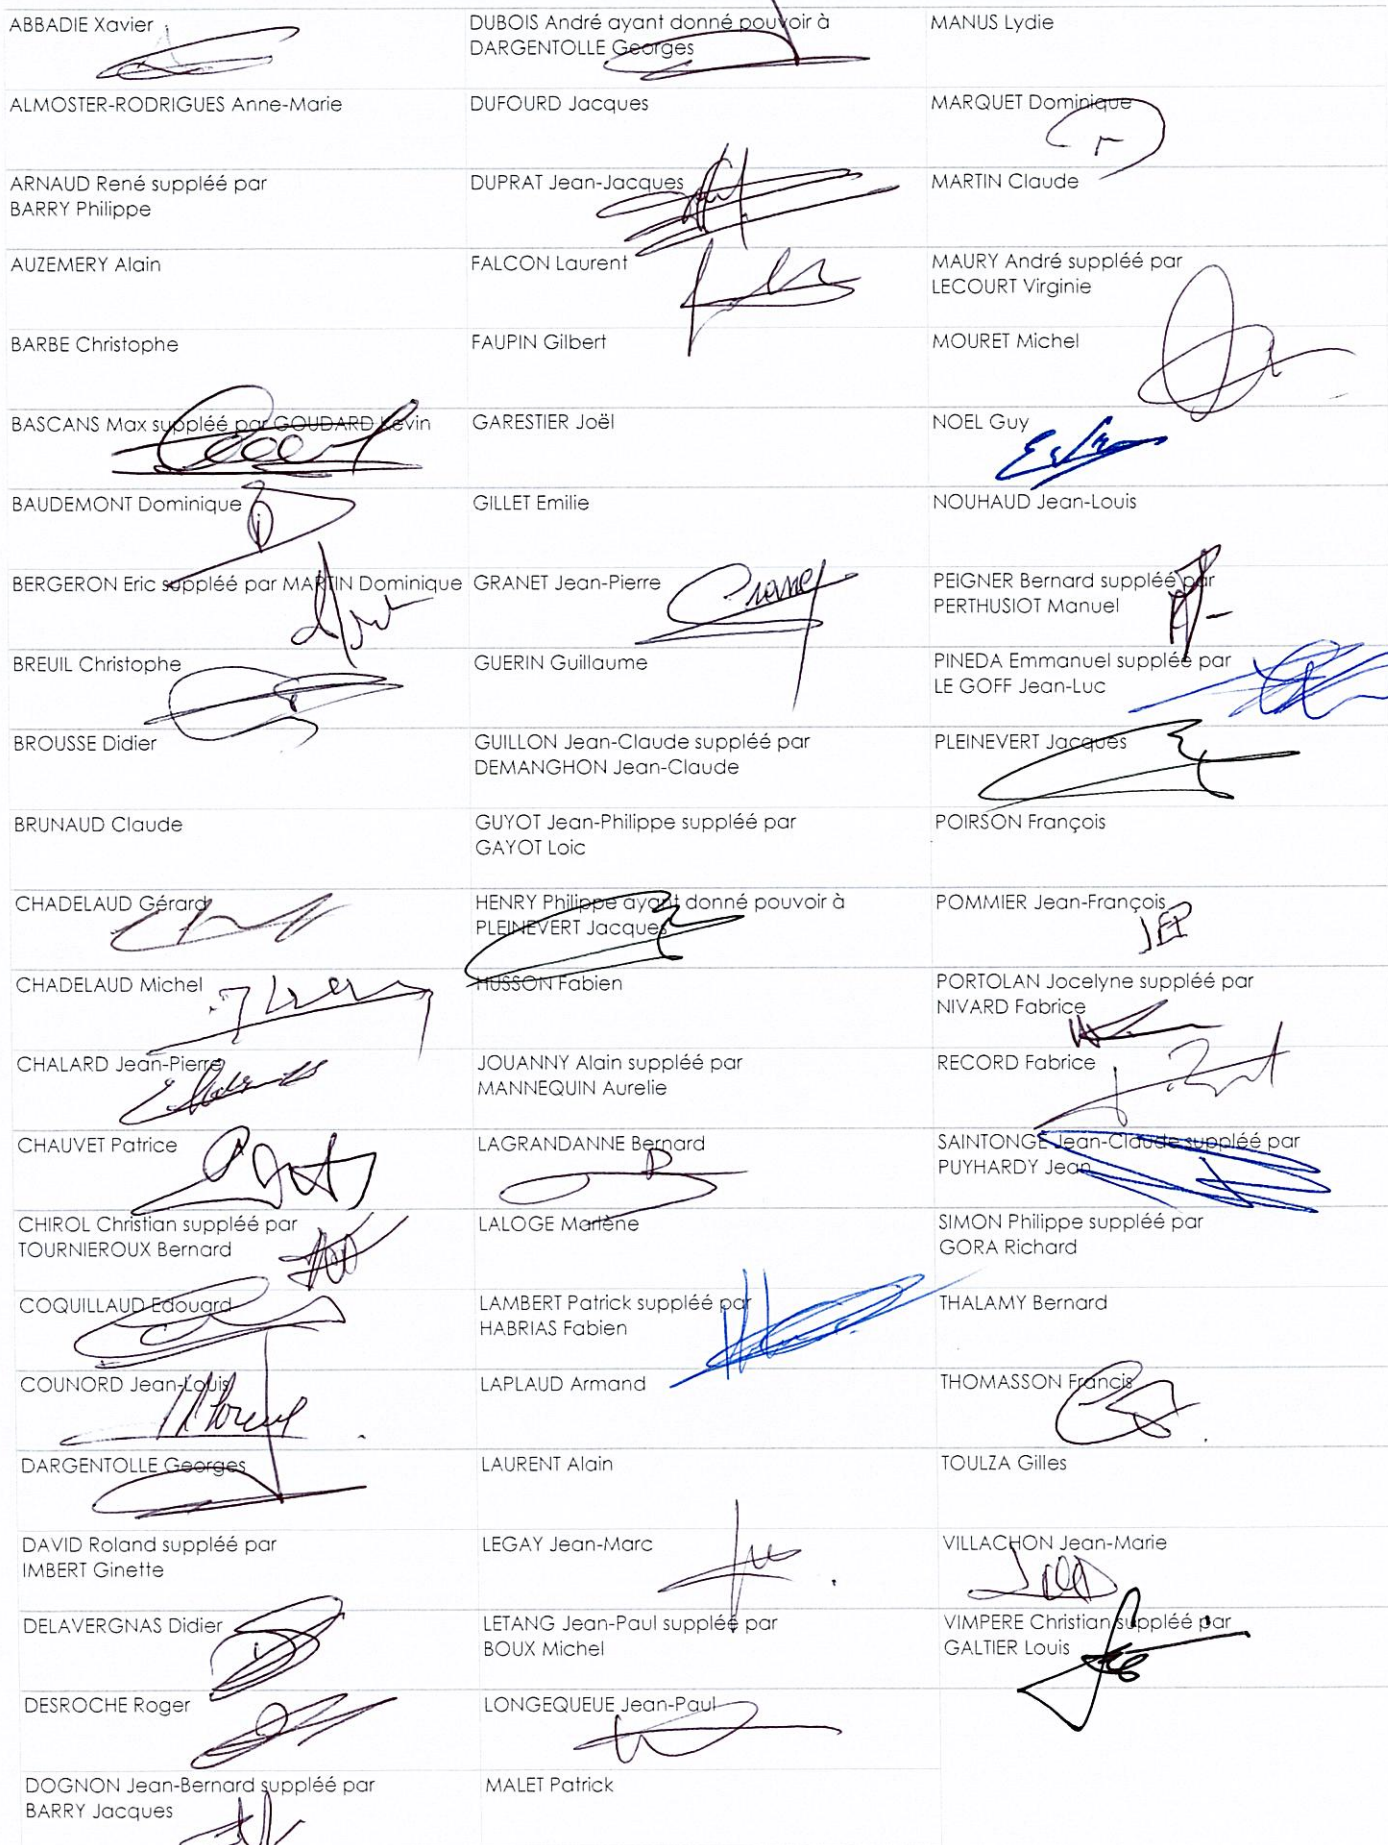 ABBADIE Xavier
ALMOSTER-RODRIGUES Anne-Marie
ARNAUD René suppléé par
BARRY Philippe
AUZEMERY Alain
BARBE Christophe
BASCANS Max suppléé par GOUDARD Kévin
BAUDEMONT Dominique
BERGERON Eric suppléé par MARTIN Dominique
BREUIL Christophe
BROUSSE Didier
BRUNAUD Claude
CHADELAUD Gérard
CHADELAUD Michel
CHALARD Jean-Pierre
CHAUVET Patrice
CHIROL Christian suppléé par
TOURNIEROUX Bernard
COQUILLAUD Edouard
COUNORD Jean-Louis
DARGENTOLLE Georges
DAVID Roland suppléé par
IMBERT Ginette
DELAVERGNAS Didier
DESROCHE Roger
DOGNON Jean-Bernard suppléé par
BARRY Jacques
DUBOIS André ayant donné pouvoir à
DARGENTOLLE Georges
DUFOURD Jacques
DUPRAT Jean-Jacques
FALCON Laurent
FAUPIN Gilbert
GARESTIER Joël
GILLET Emilie
GRANET Jean-Pierre
Granet
GUERIN Guillaume
GUILLON Jean-Claude suppléé par
DEMANGHON Jean-Claude
GUYOT Jean-Philippe suppléé par
GAYOT Loic
HENRY Philippe ayant donné pouvoir à
PLEINEVERT Jacques
HUSSON Fabien
JOUANNY Alain suppléé par
MANNEQUIN Aurelie
LAGRANDANNE Bernard
LALOGE Marlène
LAMBERT Patrick suppléé par
HABRIAS Fabien
LAPLAUD Armand
LAURENT Alain
LEGAY Jean-Marc
LETANG Jean-Paul suppléé par
BOUX Michel
LONGEQUEUE Jean-Paul
MALET Patrick
MANUS Lydie
MARQUET Dominique
MARTIN Claude
MAURY André suppléé par
LECOURT Virginie
MOURET Michel
NOEL Guy
NOUHAUD Jean-Louis
PEIGNER Bernard suppléé par
PERTHUSIOT Manuel
PINEDA Emmanuel suppléé par
LE GOFF Jean-Luc
PLEINEVERT Jacques
POIRSON François
POMMIER Jean-François
JFP
PORTOLAN Jocelyne suppléé par
NIVARD Fabrice
RECORD Fabrice
SAINTONGE Jean-Claude suppléé par
PUYHARDY Jean
SIMON Philippe suppléé par
GORA Richard
THALAMY Bernard
THOMASSON Francis
TOULZA Gilles
VILLACHON Jean-Marie
VIMPERE Christian suppléé par
GALTIER Louis